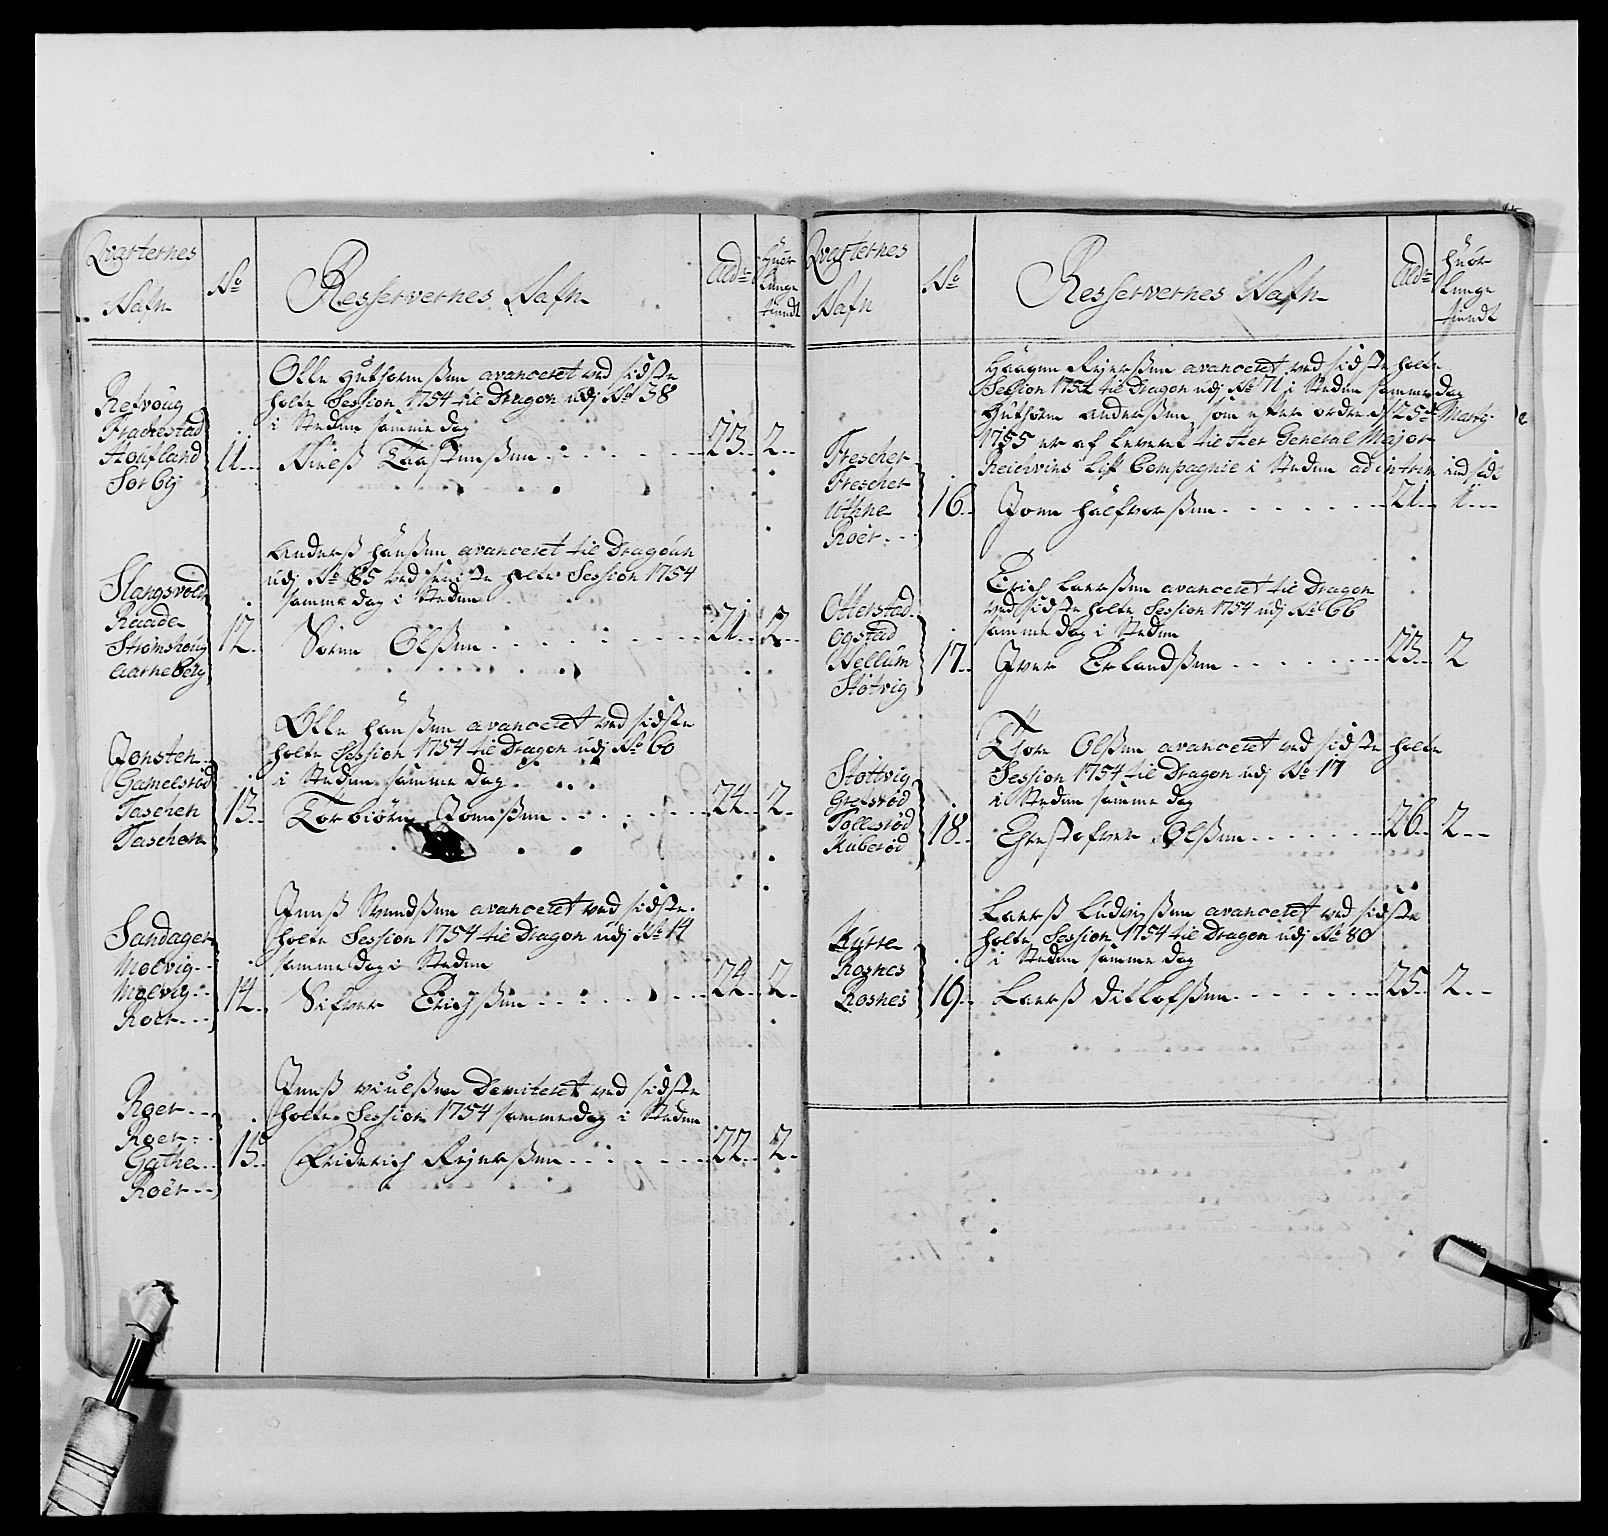 Qvarternes Nafn
No
Resservernes Nafn
Ald:
huor Lenge tiendt
Refvoug
Frachestad
Houfland
Sorby
11
Olle Guthormßen avanceret ved sidste
holte Session 1754 til Dragon udj No 38
i Steden samme dag
Nielß Torstenßen
23
2
Slangsvold
Raade
Strømshoug
Aarneberg
12
Anderß Hanßen avanceret til Dragoun
udj No 85 ved seniste holte Session 1754
samme dag i Steden
Søren Olßen
21
2
Jonsten
Gamelsrød
Taschen
Taschen
13
Olle Hanßen avanceret ved sidste
holte Session 1754 til Dragon udj No 60
i Steden samme dag
Torbiørn Jonsßen
24
2
Sandager
Molvig
Molvig
Roer
14
Jenß Svendßen avanceret ved sidste
holte Session 1754 til Dragon udj No 14
samme dag i Steden
Sifver Erichßen
24
2
Roer
Roer
Gathe
Roer
15
Jenß Nielßen Demiteret ved sidste
holte Session 1754 samme dag i Steden
Friderich Reyerßen
22
2
Qvarternes Nafn
No
Resservernes Nafn
Ald:
huor Lenge tiendt
Frescher
Frescher
Uthne
Roer
16
Haagen Reyerßen avanceret ved sidste holte
Session 1754 til Dragon udj No 71 i Steden samme dag
Guthorm Anderßen som efter ordre af 25de Marty
1755 er af leveret til Her General Major
Reichvins Lif Compagnie i Steden ad intrim ind sadt
Joen Halfvorßen
21
1
Otterstad
Ogstad
Mellum
Støtvig
17
Erich Larßen avanceret til Dragon
ved sidste holte Session 1754 udj No 66
samme dag i Steden
Iver Erlandßen
23
2
Støttvig
Grefsrød
Tollesrød
Kuberød
18
Tjøre Olßen avanceret ved sidste holte
Session 1754 til Dragon udj No 17
i Steden samme dag
Christofver Olßen
26
2
Rosnes
Rosnes
19
Larß Ludvigßen avanceret ved sidste
holte Session 1754 til Dragon udj No 80
i Steden samme dag
Larß Ditlofßen
25
2